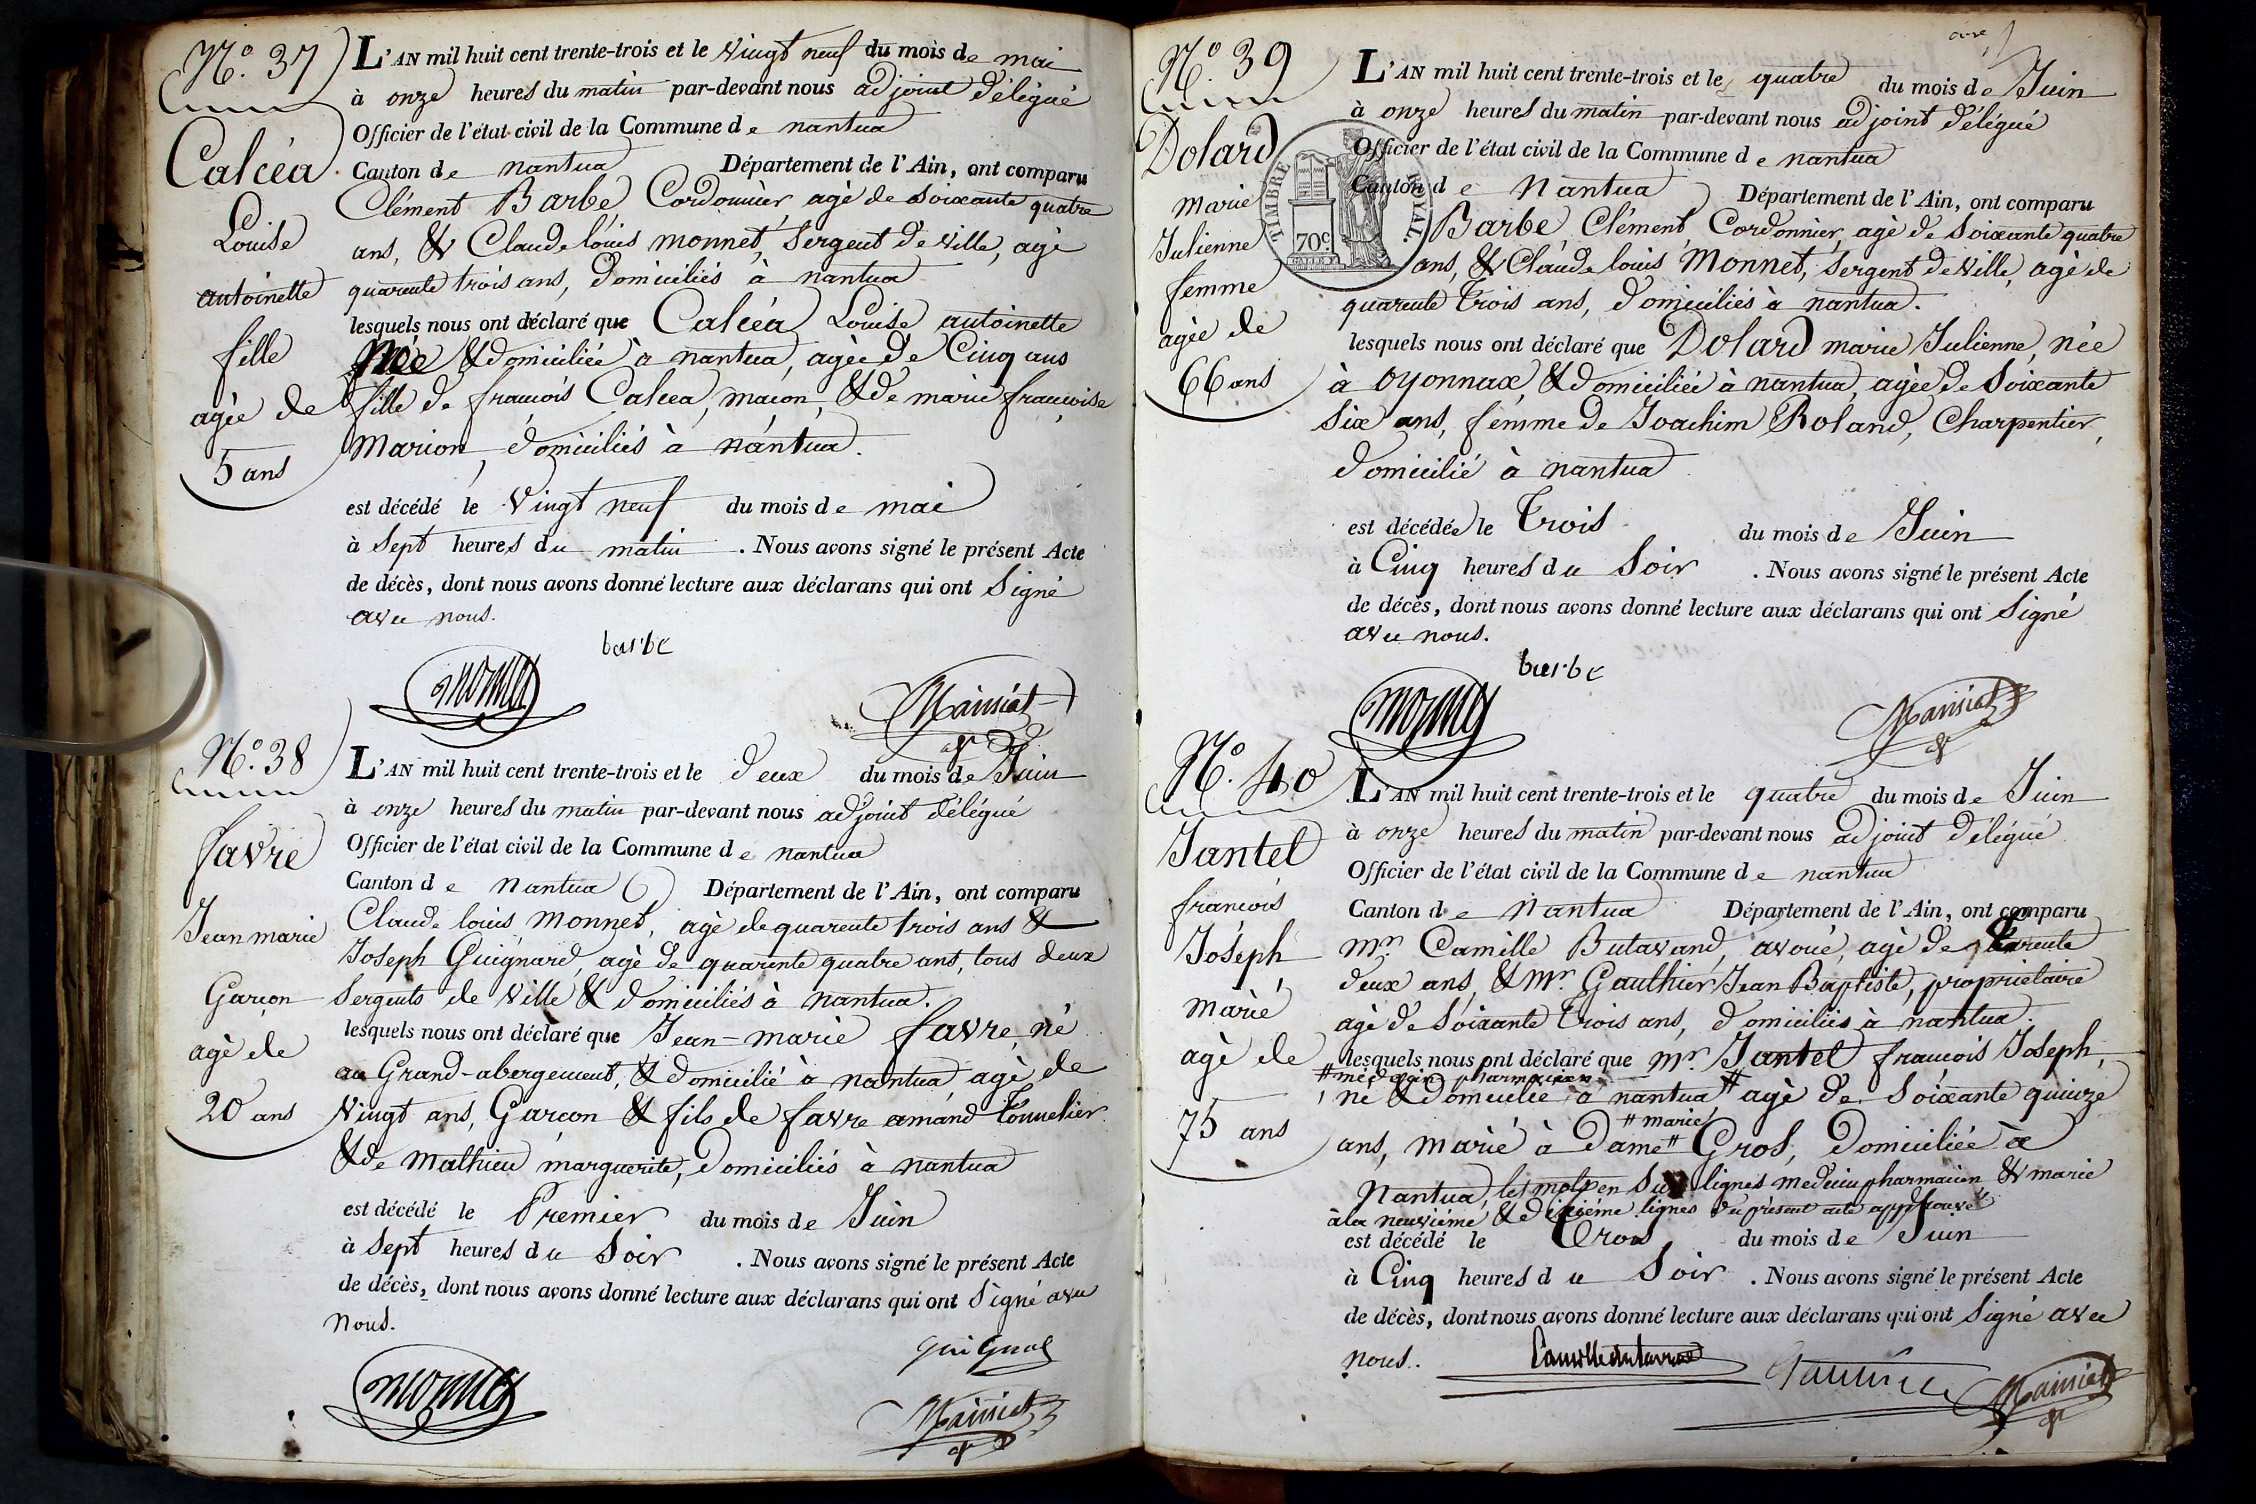 N.º 37
Calcéa
Louise
antoinette
fille
agée de
5 ans
L'AN mil huit cent trente-trois et le vingt neuf du mois de mai
à onze heures du matin par-devant nous adjoint délégué
Officier de l'état civil de la Commune de nantua
Canton de nantua Département de l'Ain, ont comparu
Clément Barbe Cordonnier, agé de soixante quatre
ans, & Claude louis monnet, sergent de ville, agé
quarente trois ans, domiciliés à nantua
lesquels nous ont déclaré que Calcéa Louise antoinette
Née & domiciliée à nantua, agée de Cinq ans
fille de francois Calcea, macon, & de marie francoise
Marion, domiciliés à nantua.
est décédé le vingt neuf du mois de mai
à sept heures du matin . Nous avons signé le présent Acte
de décès, dont nous avons donné lecture aux déclarans qui ont Signé
avec nous.
barbe
monnet
Mainiat
N.º 38
favre
Jean marie
Garcon
agé de
20 ans
L'AN mil huit cent trente-trois et le deux du mois de Juin
à onze heures du matin par-devant nous adjoint délégué
Officier de l'état civil de la Commune de nantua
Canton de nantua Département de l'Ain, ont comparu
Claude louis monnet, agé de quarente trois ans &
Joseph Guignard, agé de quarente quatre ans, tous deux
Sergents de ville & domiciliés à nantua.
lesquels nous ont déclaré que Jean-marie favre, né
au Grand-abergement, & domicilié à nantua agé de
vingt ans, Garcon & fils de favre amand tonnelier
& de Mathieu marguerite, domiciliés à nantua
est décédé le Premier du mois de Juin
à Sept heures du Soir . Nous avons signé le présent Acte
de décès, dont nous avons donné lecture aux déclarans qui ont Signé avec
nous.
monnet
Mainiat
N.º 39
Dolard
marie
Julienne
femme
agée de
66 ans
TIMBRE ROYAL.
70c.
L'AN mil huit cent trente-trois et le quatre du mois de Juin
à onze heures du matin par-devant nous adjoint délégué
Officier de l'état civil de la Commune de nantua
Canton de Nantua Département de l'Ain, ont comparu
Barbe Clément Cordonnier, agé de Soixante quatre
ans, & Claude louis Monnet, sergent de ville, agé de
quarente trois ans, domiciliés à nantua.
lesquels nous ont déclaré que Dolard marie Julienne, née
à oyonnax, & domiciliée à nantua, agée de Soixante
Six ans, femme de Joachim Roland, Charpentier,
domicilié à nantua
est décédée le Trois du mois de Juin
à Cinq heures du Soir . Nous avons signé le présent Acte
de décès, dont nous avons donné lecture aux déclarans qui ont Signé
avec nous.
barbe
monnet
Mainiat
N.º 40
Jantel
francois
Joseph
marié
agé de
75 ans
L'AN mil huit cent trente-trois et le quatre du mois de Juin
à onze heures du matin par-devant nous adjoint délégué
Officier de l'état civil de la Commune de nantua
Canton de Nantua Département de l'Ain, ont comparu
mr. Camille Butavand, avoué, agé de quarente
deux ans, & mr. Gaulthier Jean Baptiste, propriétaire
agé de Soixante trois ans, domiciliés à nantua.
lesquels nous ont déclaré que mr. Jantel francois Joseph,
# médecin pharmacien
né & domicilié à nantua # agé de Soixante quinze
# marie
ans, marié à Dame # Gros, domiciliée à
Nantua, les mots en Sus lignes medecin pharmacien & marie
à la neuvième & dixième lignes du présent acte approuvé
est décédé le Trois du mois de Juin
à Cinq heures du Soir . Nous avons signé le présent Acte
de décès, dont nous avons donné lecture aux déclarans qui ont Signé avec
nous.
Mainiat